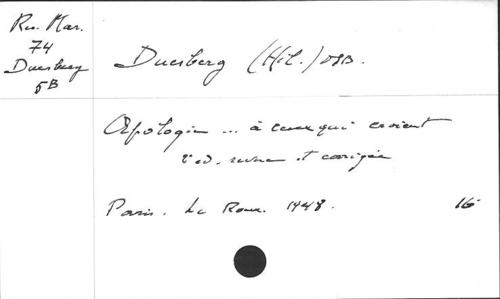 Ru. Mar.
74
Duesberg
5B
Duesberg (Hil.) OSB.
Apologie ... à ceux qui croient
2e éd. revue et corrigée
Paris. Le Roux. 1948. 16